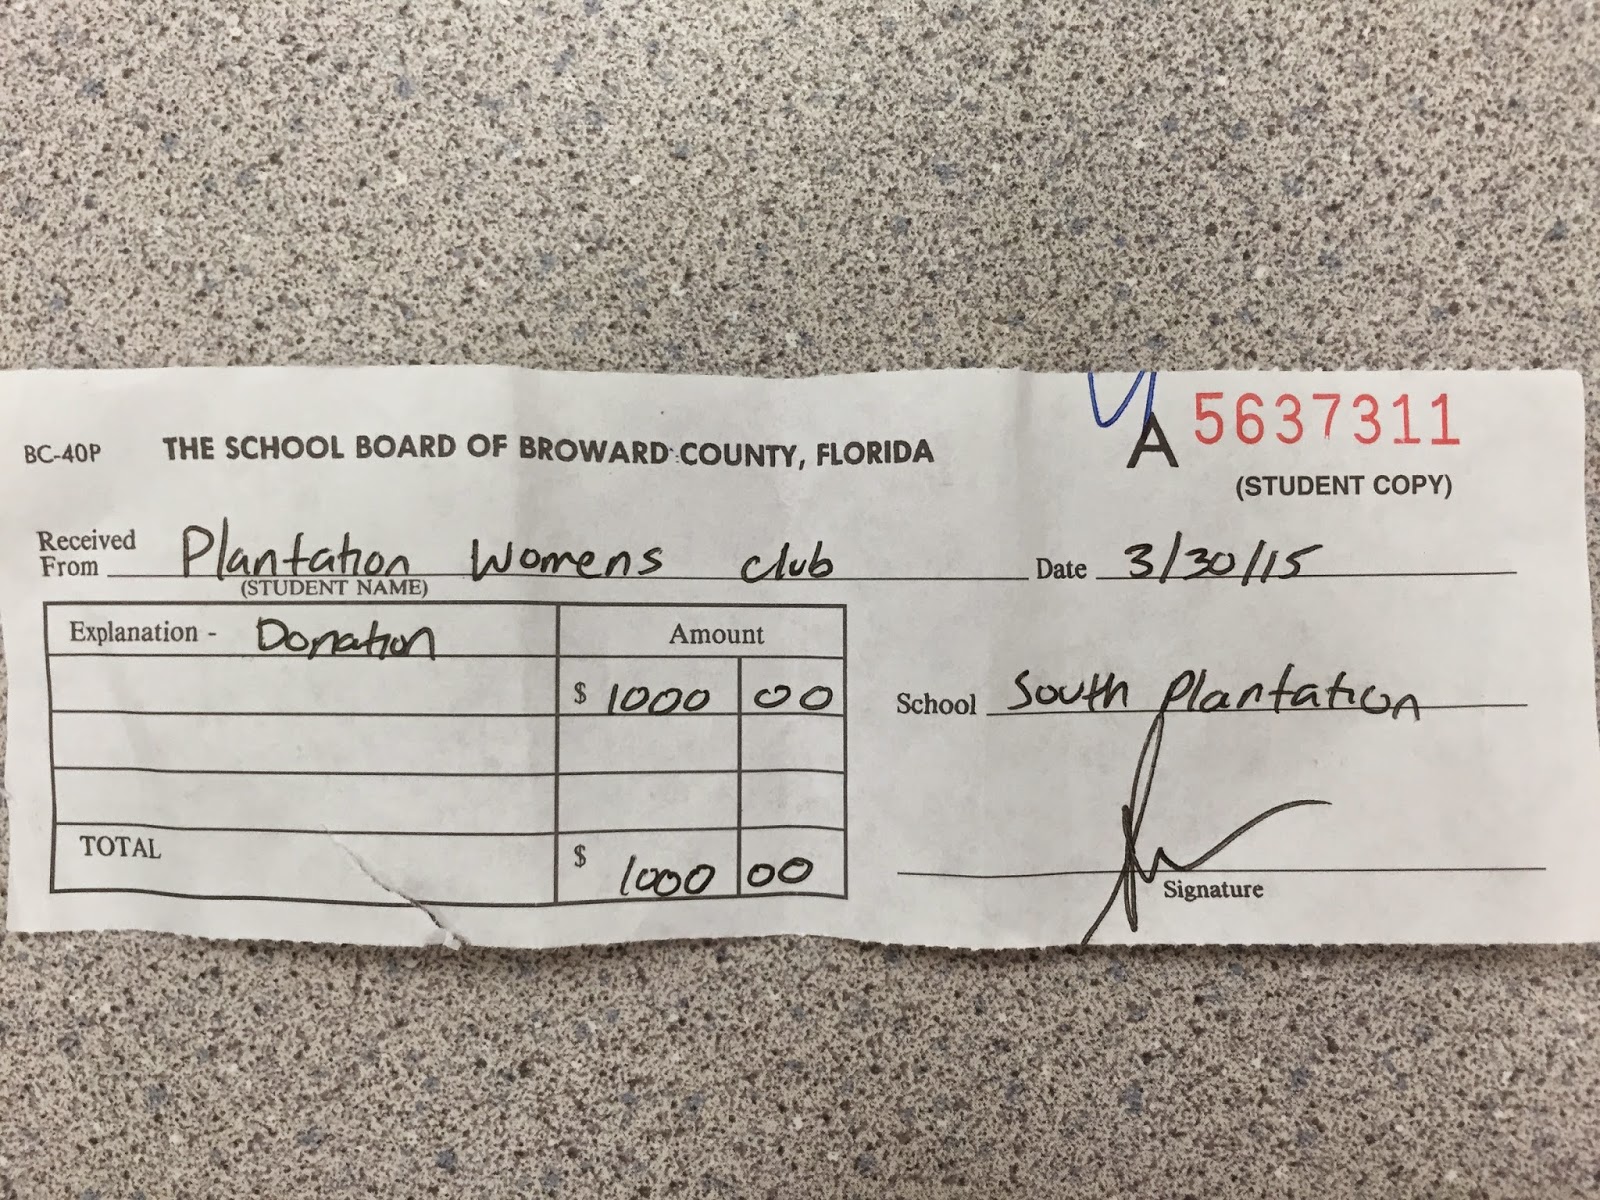 BC-40P THE SCHOOL BOARD OF BROWARD COUNTY, FLORIDA A 5637311
(STUDENT COPY)
Received From Plantation Womens club Date 3/30/15
(STUDENT NAME)
Explanation - Donation Amount
$ 1000 00
School South Plantation
TOTAL $ 1000 00
Signature